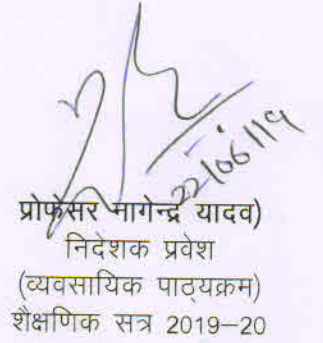 22/06/19
प्रोफेसर नागेन्द्र यादव)
निदेशक प्रवेश
(व्यवसायिक पाठ्यक्रम)
शैक्षणिक सत्र 2019–20